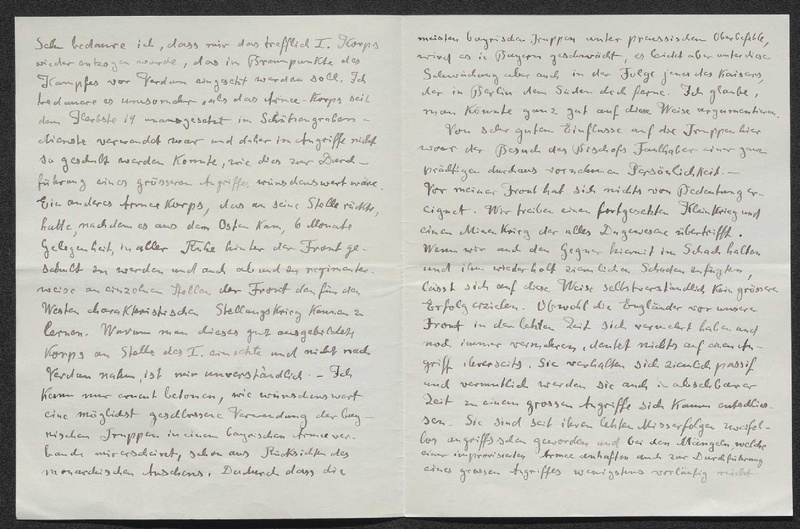 Sehr bedaure ich, dass mir das trefflich I. Korps
wieder entzogen wurde, das im Brennpunkte des
Kampfes vor Verdun eingesetzt werden soll. Ich
bedauere es umsomehr, als das Armee-Korps seit
dem Herbste 14 unausgesetzt im Schützengraben-
dienste verwendet war und daher im Angriffe nicht
so geschult werden konnte, wie dies zur Durch-
führung eines grösseren Angriffes wünschenswert wäre.
Ein anderes Armee Korps, das an seine Stelle rückte,
hatte, nachdem es aus dem Osten kam, 6 Monate
Gelegenheit, in aller Ruhe hinter der Front ge-
schult zu werden und auch ab und zu regimenter-
weise an einzelnen Stellen der Front den für den
Westen charakteristischen Stellungskrieg kennen zu
lernen. Warum man dieses gut ausgebildete
Korps an Stelle des I. einsetzte und nicht nach
Verdun nahm, ist mir unverständlich. - Ich
kann nur erneut betonen, wie wünschenswert
eine möglichst geschlossene Verwendung der bay-
rischen Truppen in einem bayrischen Armeever-
bande mir erscheint, schon aus Rücksichten des
monarchischen Ansehens. Dadurch dass die
meisten bayrischen Truppen unter preussischem Oberbefehle,
wird es in Bayern geschwächt, es leidet aber unter dieser
Schwächung aber auch in der Folge jenes des Kaisers,
der in Berlin dem Süden doch ferne. Ich glaube,
man könnte ganz gut auf diese Weise argumentieren.
Von sehr gutem Einflusse auf die Truppen hier
war der Besuch des Bischofs Faulhaber einer ganz
prächtigen durchaus vornehmen Persönlichkeit. -
Vor meiner Front hat sich nichts von Bedeutung er-
eignet. Wir treiben einen fortgesetzten Kleinkrieg und
einen Minenkrieg der alles Dagewesene übertrifft.
Wenn wir auch den Gegner hiemit im Schach halten
und ihm wiederholt ziemlichen Schaden zufügten,
lässt sich auf diese Weise selbstverständlich kein grösserer
Erfolg erzielen. Obwohl die Engländer vor unsere
Front in der letzten Zeit sich vermehrt haben und
noch immer vermehren, deutet nichts auf einen An-
griff ihrerseits. Sie verhalten sich ziemlich passif
und vermutlich werden sie auch in absehbarer
Zeit zu einem grossen Angriffe sich kaum entschlies-
sen. Sie sind seit ihren letzten Misserfolgen zweifel-
los angriffsscheu geworden und bei den Mängeln welche
einer improvisierten Armee anhaften auch zur Durchführung
eines grossen Angriffes wenigstens vorläufig nicht